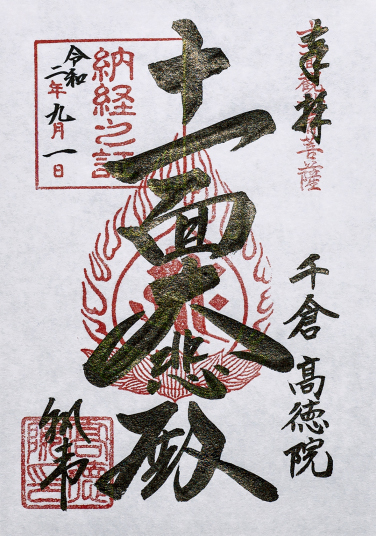 奉拝
十一面観世音菩薩
千倉 高徳院
十一面大悲殿
納経之証
令和
二年九月一日
高徳院印